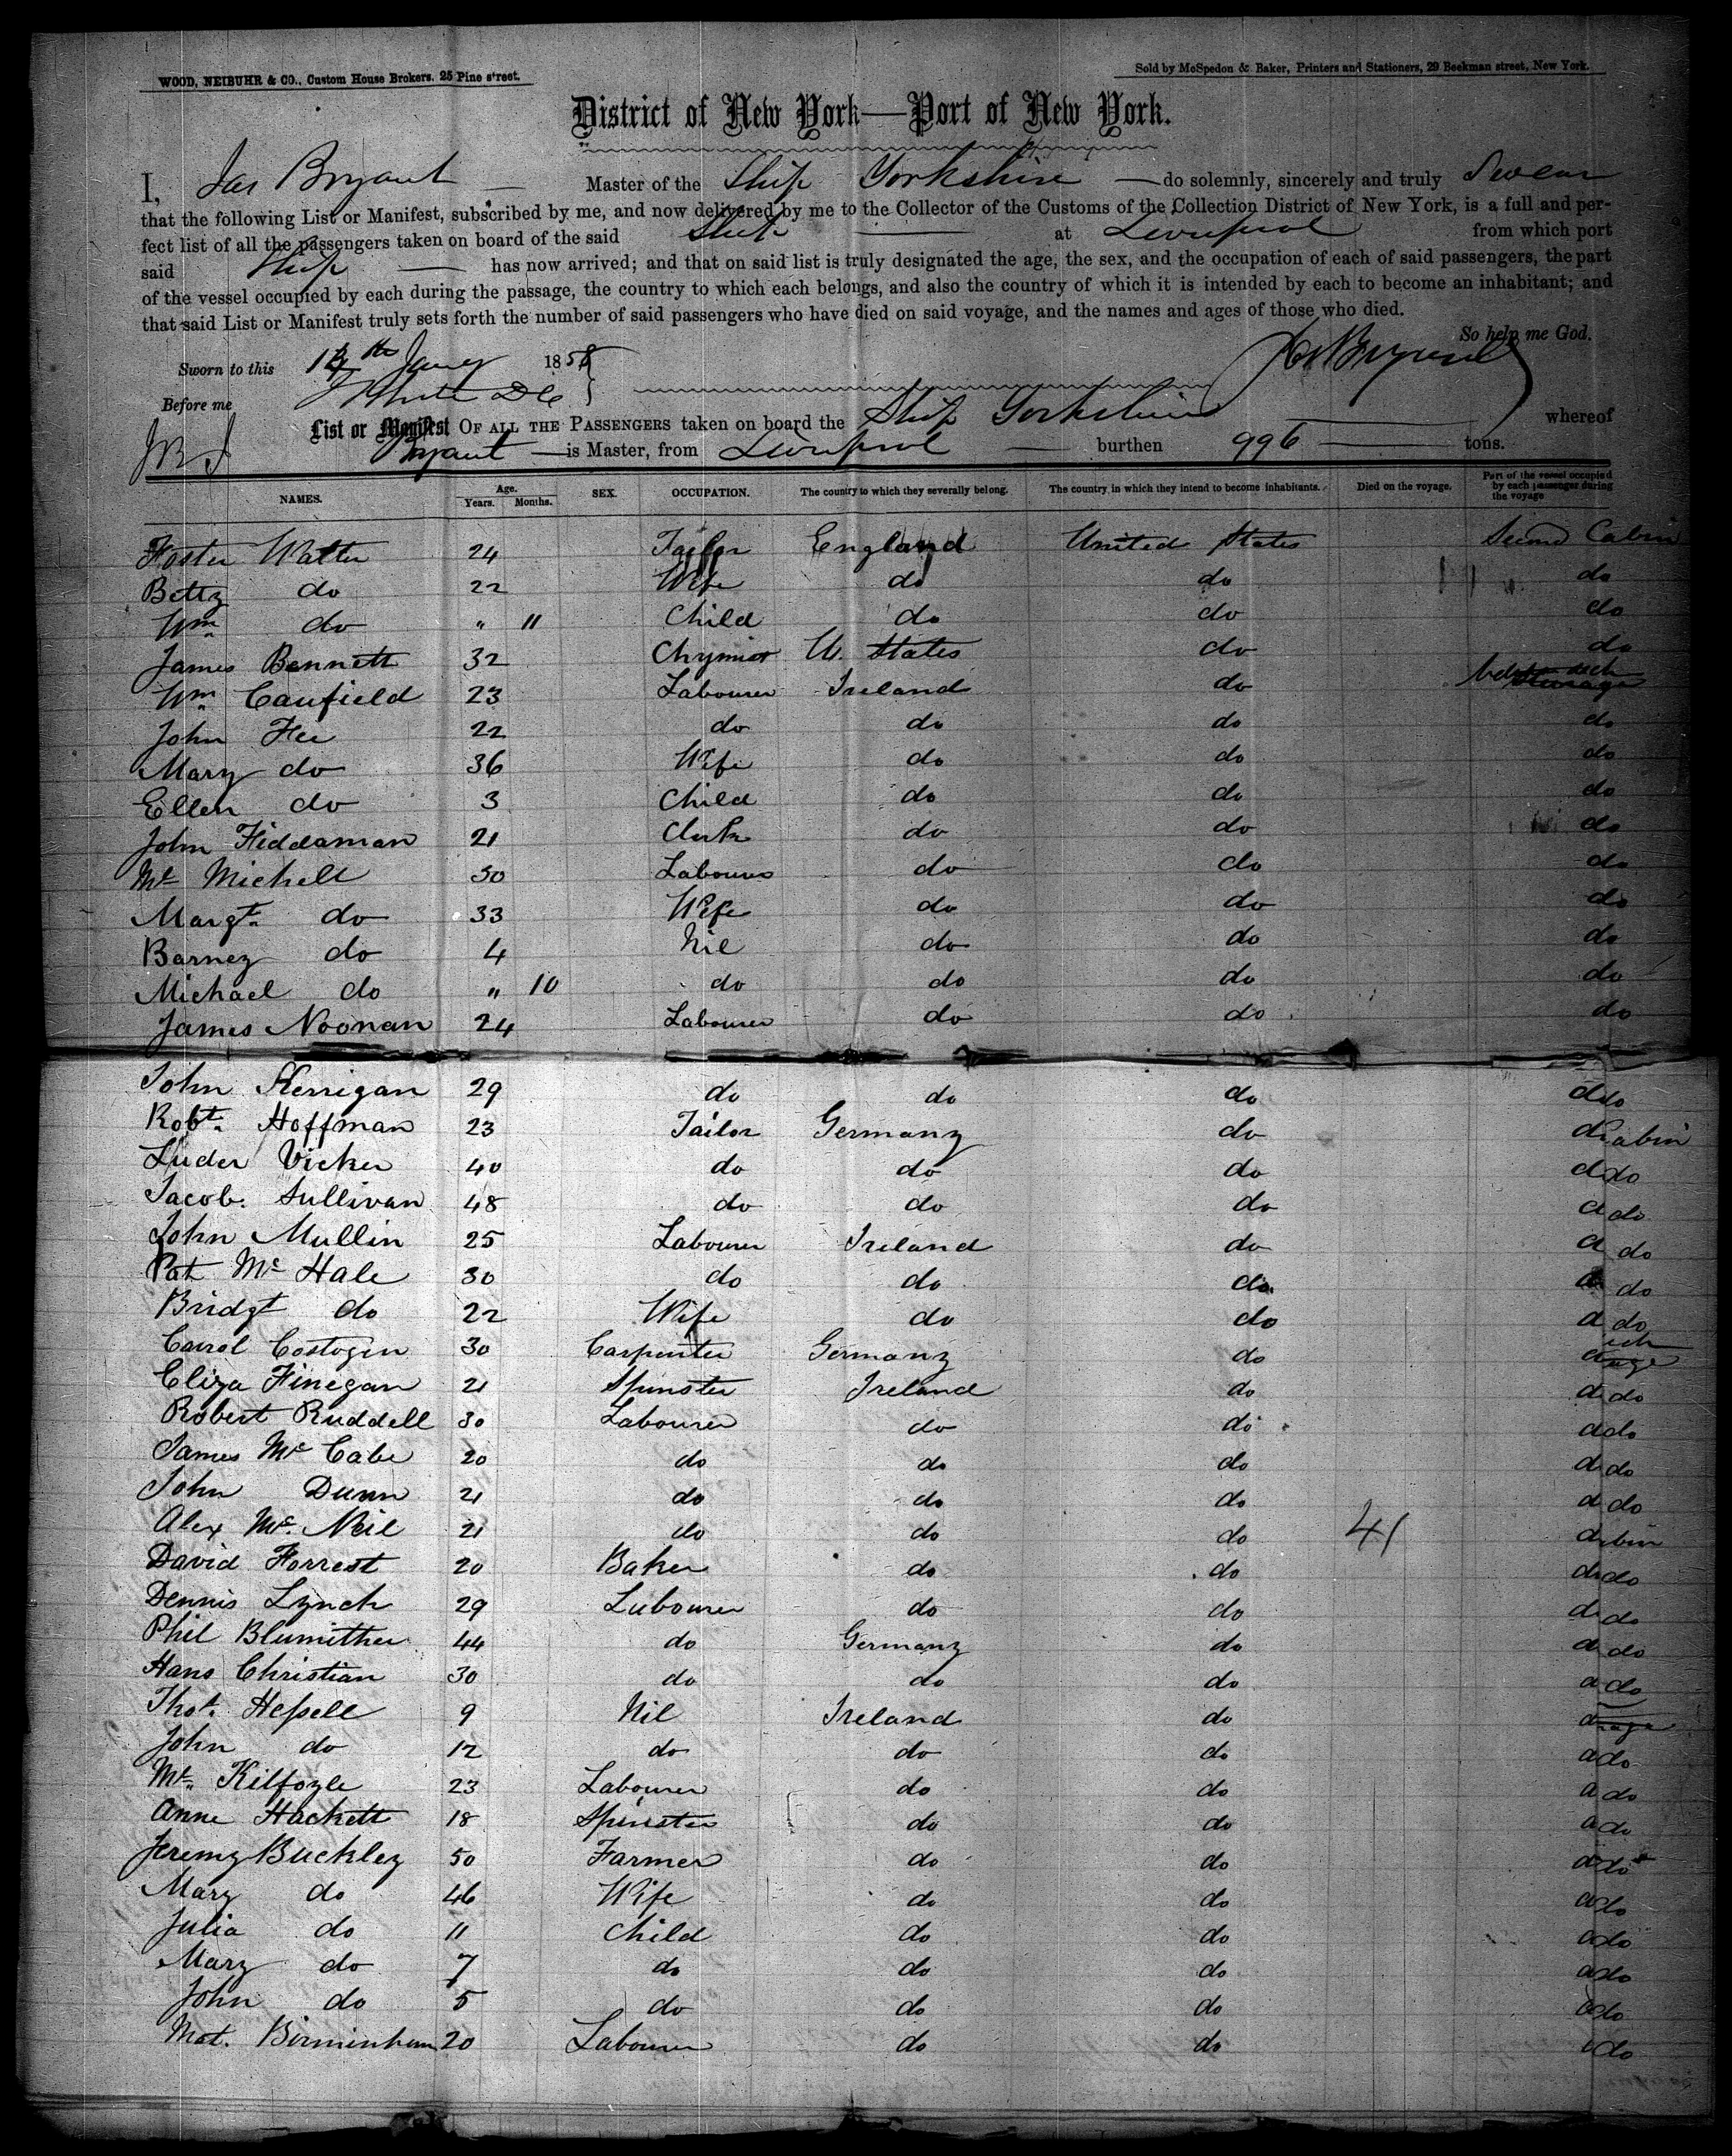 WOOD, NEIBUHR & CO., Custom House Brokers, 25 Pine street.
Sold by McSpedon & Baker, Printers and Stationers, 29 Beekman street, New York.
District of New York—Port of New York.
I, Jas Bryant Master of the Ship Yorkshire do solemnly, sincerely and truly Swear
that the following List or Manifest, subscribed by me, and now delivered by me to the Collector of the Customs of the Collection District of New York, is a full and per-
fect list of all the passengers taken on board of the said Ship at Liverpool from which port
said Ship has now arrived; and that on said list is truly designated the age, the sex, and the occupation of each of said passengers, the part
of the vessel occupied by each during the passage, the country to which each belongs, and also the country of which it is intended by each to become an inhabitant; and
that said List or Manifest truly sets forth the number of said passengers who have died on said voyage, and the names and ages of those who died.
So help me God.
Sworn to this Jany 1858
Before me
List or Manifest OF ALL THE PASSENGERS taken on board the Ship Yorkshire whereof
Bryant is Master, from Liverpool burthen 996 tons.
NAMES. Age. Years. Months. SEX. OCCUPATION. The country to which they severally belong. The country in which they intend to become inhabitants. Died on the voyage. Part of the vessel occupied by each passenger during the voyage
Foster Walter 24 Tailor England United States Second Cabin
Betty do 22 Wife do do do
Wm do " 11 Child do do do
James Bennett 32 Chymist U. States do do
Wm Caufield 23 Labourer Ireland do
John Fee 22 do do do do
Mary do 36 Wife do do do
Ellen do 3 Child do do do
John Fiddaman 21 Clerk do do do
Mt Michell 30 Labourer do do do
Margt do 33 Wife do do do
Barney do 4 Nil do do do
Michael do " 10 do do do do
James Noonan 24 Labourer do do do
John Kerrigan 29 do do do do
Robt Hoffman 23 Tailor Germany do
Luder Vicker 40 do do do do
Jacob Sullivan 48 do do do do
John Mullin 25 Labourer Ireland do do
Pat McHale 30 do do do do
Bridgt do 22 Wife do do do
Carrol Costogin 30 Carpenter Germany do
Eliza Finegan 21 Spinster Ireland do do
Robert Ruddell 30 Labourer do do do
James McCabe 20 do do do do
John Dunn 21 do do do do
Alex McNeil 21 do do do 41
David Forrest 20 Baker do do do
Dennis Lynch 29 Labourer do do do
Phil Blumither 44 do Germany do do
Hans Christian 30 do do do do
Thos. Hessell 9 Nil Ireland do
John do 12 do do do do
Mt. Kilfoyle 23 Labourer do do do
Anne Hackett 18 Spinster do do do
Jeremy Buckley 50 Farmer do do do
Mary do 46 Wife do do do
Julia do 11 Child do do do
Mary do 7 do do do do
John do 5 do do do do
Mat. Birminham 20 Labourer do do do